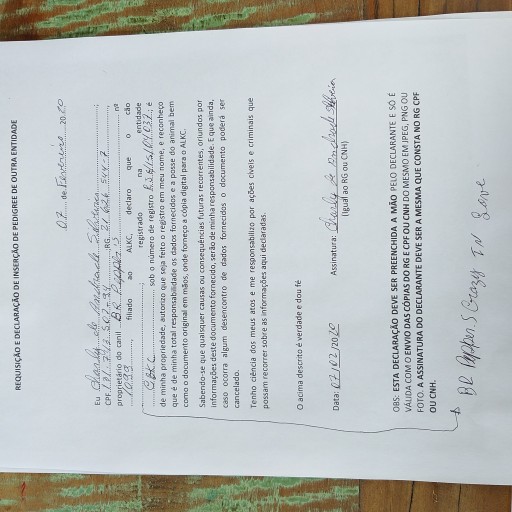 REQUISIÇÃO E DECLARAÇÃO DE INSERÇÃO DE PEDIGREE DE OUTRA ENTIDADE
07 de Fevereiro 2020
Eu Charlly de Andrade
CPF RG
proprietário do canil BR Pepper.s nº
1039, filiado ao ALKC, declaro que o cão
registrado na entidade
CBKC sob o número de registro é
de minha propriedade, autorizo que seja feito o registro em meu nome, e reconheço
que é de minha total responsabilidade os dados fornecidos e a posse do animal bem
como o documento original em mãos, onde forneço a cópia digital para o ALKC.
Sabendo-se que quaisquer causas ou consequências futuras recorrentes, oriundos por
informações deste documento fornecido, serão de minha responsabilidade. E que ainda,
caso ocorra algum desencontro de dados fornecidos o documento poderá ser
cancelado.
Tenho ciência dos meus atos e me responsabilizo por ações cíveis e criminais que
possam recorrer sobre as informações aqui declaradas.
O acima descrito é verdade e dou fé
Data: 07/02/2020 Assinatura: Charlly de Andrade
(Igual ao RG ou CNH)
OBS: ESTA DECLARAÇÃO DEVE SER PREENCHIDA A MÃO PELO DECLARANTE E SO É
VÁLIDA COM O ENVIO DAS CÓPIAS DO RG E CPF OU CNH DO MESMO EM JPEG, PNG OU
FOTO. A ASSINATURA DO DECLARANTE DEVE SER A MESMA QUE CONSTA NO RG CPF
OU CNH.
BR Pepper.S Crazy IN Love